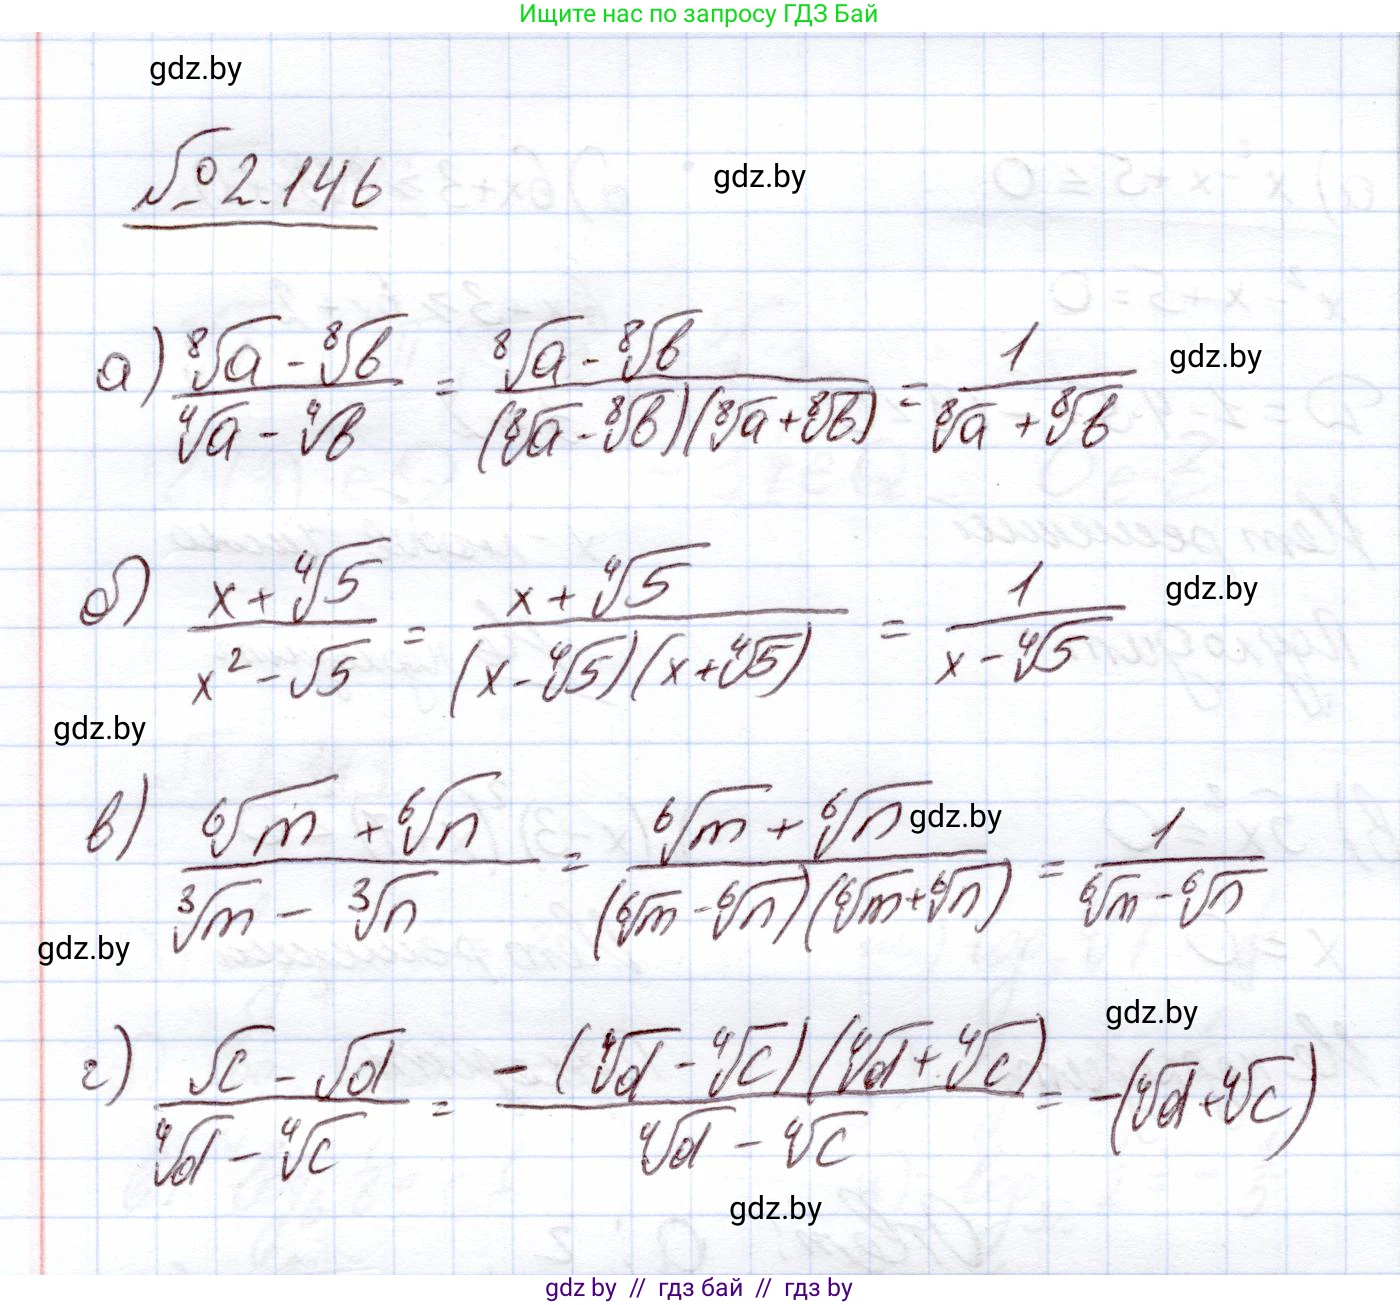 Ищите нас по запросу ГДЗ Бай
gdz.by
№ 2.146
gdz.by
а) (⁸√a - ⁸√b)/(⁴√a - ⁴√b) = (⁸√a - ⁸√b)/((⁸√a - ⁸√b)(⁸√a + ⁸√b)) = 1/(⁸√a + ⁸√b)
gdz.by
б) (x + ⁴√5)/(x² - √5) = (x + ⁴√5)/((x - ⁴√5)(x + ⁴√5)) = 1/(x - ⁴√5)
gdz.by
gdz.by
в) (⁶√m + ⁶√n)/(³√m - ³√n) = (⁶√m + ⁶√n)/((⁶√m - ⁶√n)(⁶√m + ⁶√n)) = 1/(⁶√m - ⁶√n)
gdz.by
gdz.by
г) (√c - √d)/(⁴√d - ⁴√c) = -(⁴√d - ⁴√c)(⁴√d + ⁴√c)/(⁴√d - ⁴√c) = -(⁴√d + ⁴√c)
gdz.by
gdz.by
gdz by // гдз бай // гдз by